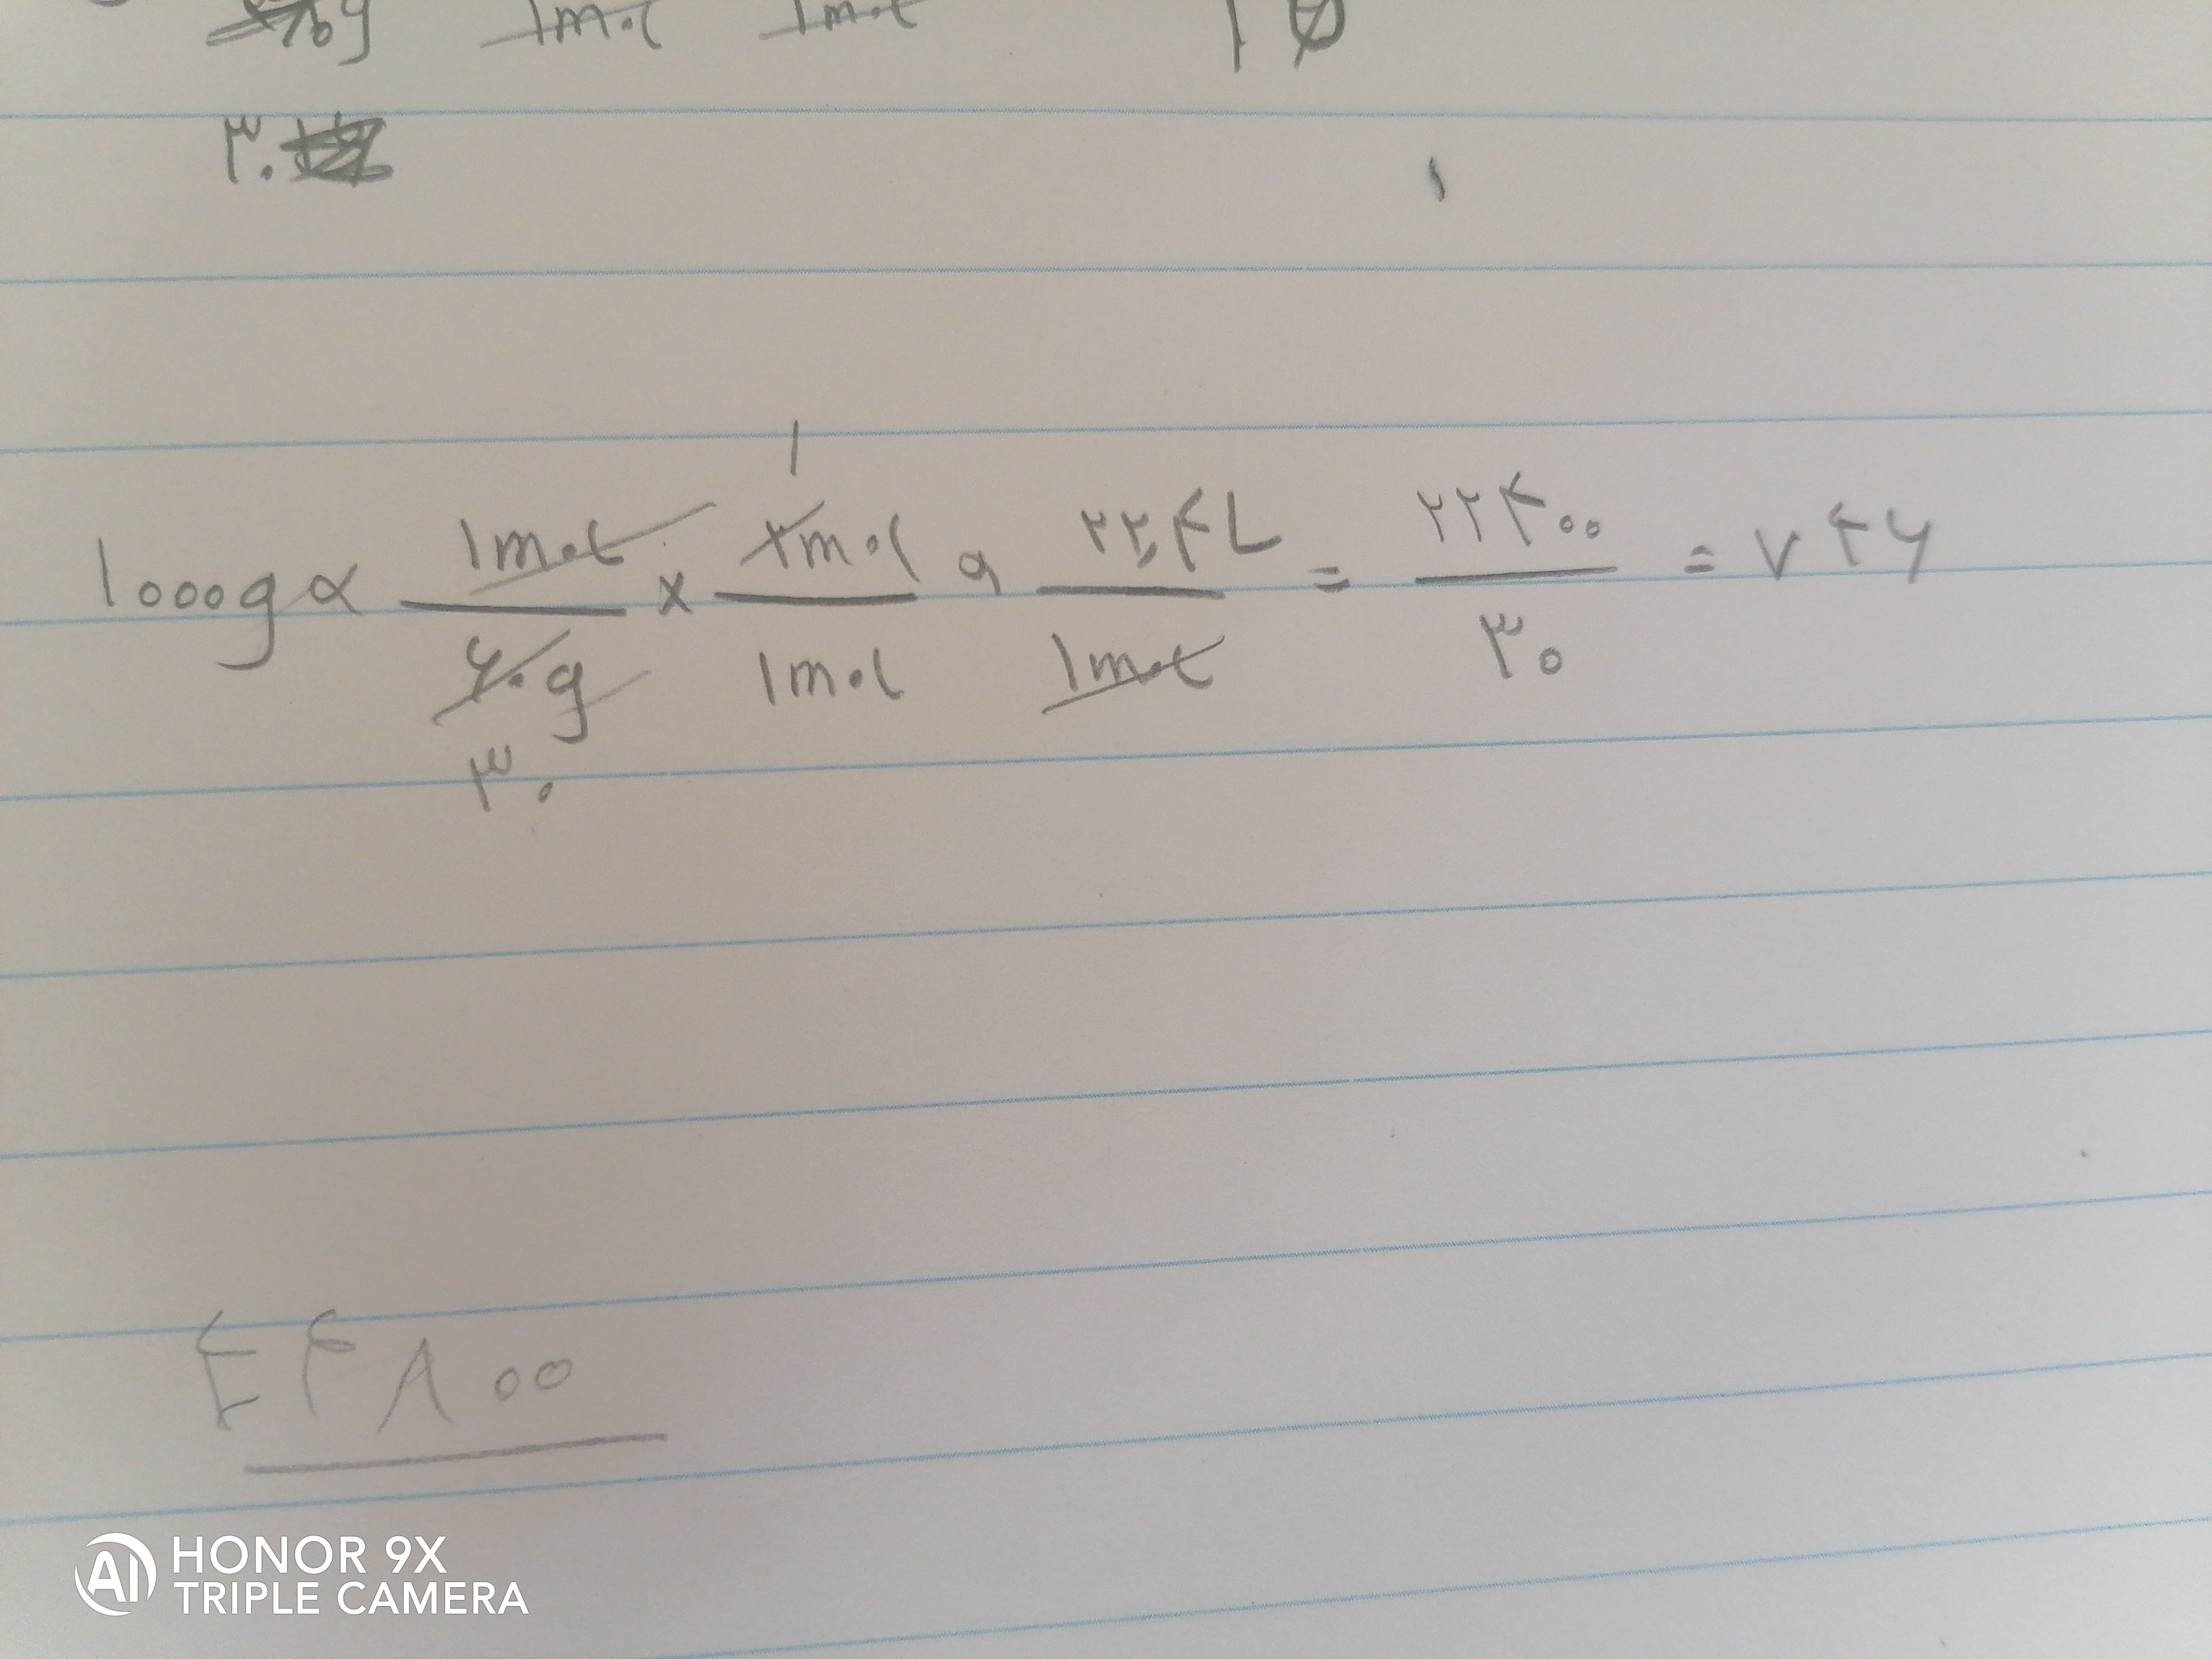 1mol 1mol
۳۰
۱
1000g × 1mol/۶۰g × ۲mol/1mol × ۲۲٫۴L/1mol = ۲۲۴۰۰/۳۰ = ۷۴۶
۳۰
۴۴۸۰۰
HONOR 9X
TRIPLE CAMERA